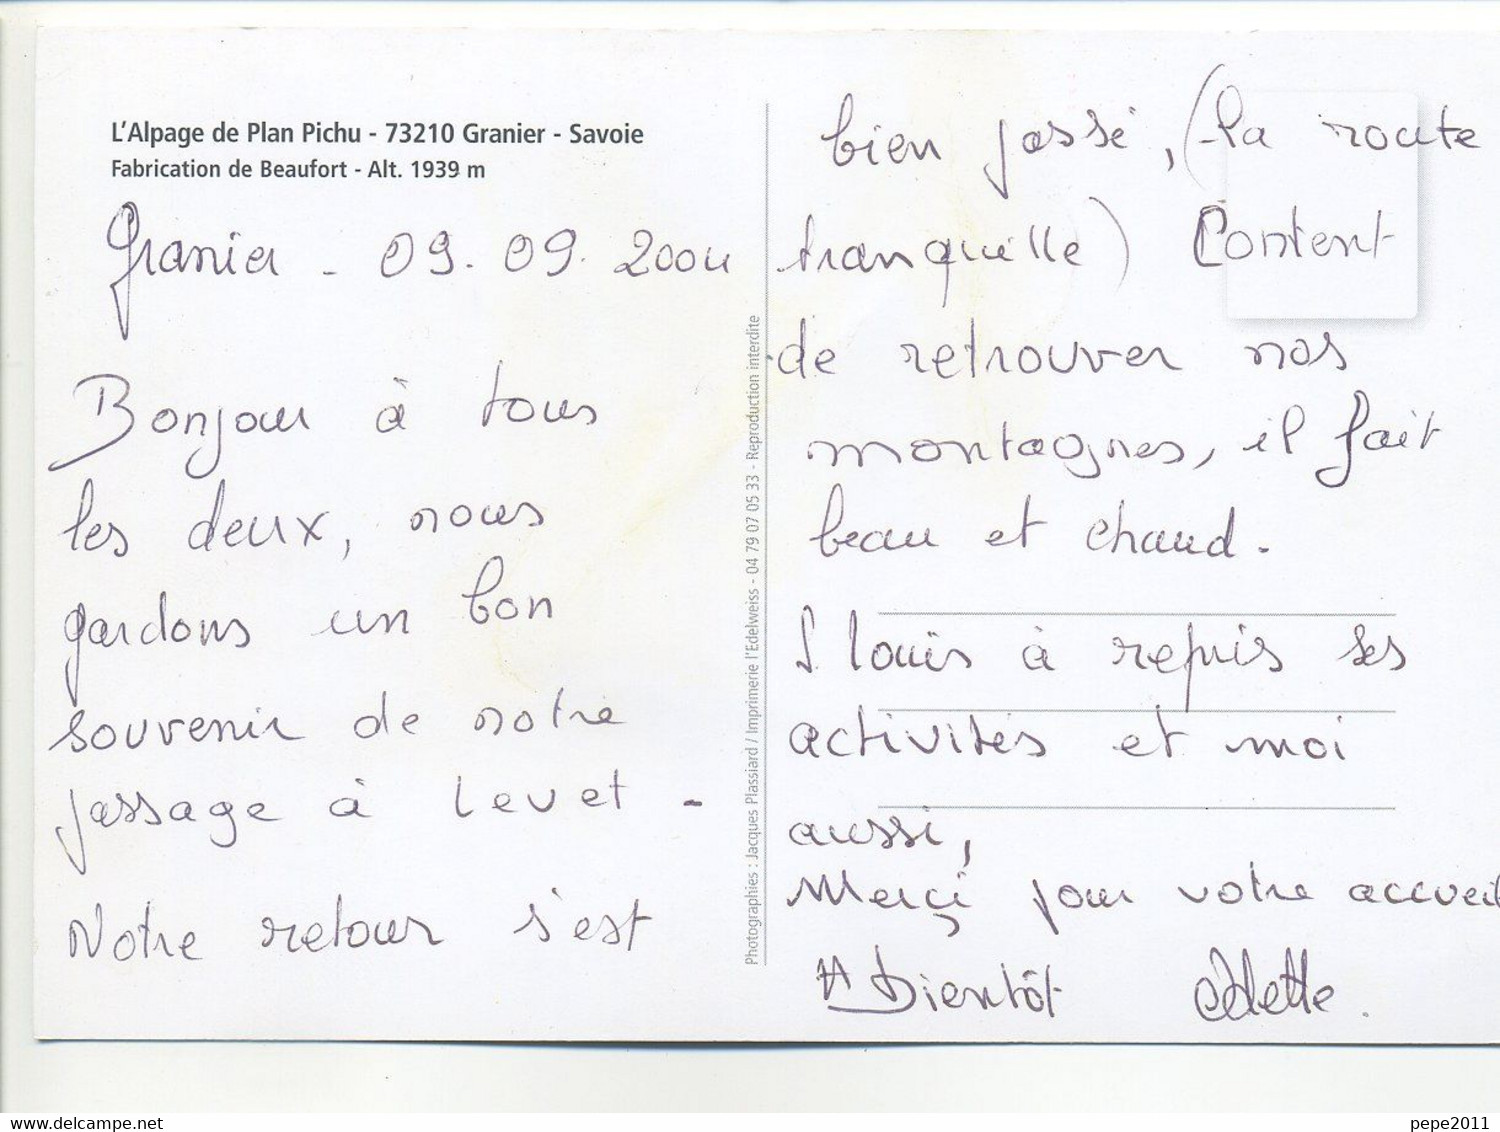 L'Alpage de Plan Pichu - 73210 Granier - Savoie
Fabrication de Beaufort - Alt. 1939 m
Granier - 09.09.2004
Bonjour à tous
les deux, nous
gardons un bon
souvenir de notre
passage à Levet -
Notre retour s'est
Photographies : Jacques Plassiard / Imprimerie l'Edelweiss - 04 79 07 05 33 - Reproduction interdite
bien passé, (la route
tranquille) Content
de retrouver nos
montagnes, il fait
beau et chaud.
Louis à repris ses
activités et moi
aussi,
Merçi pour votre accueil
A Bientôt Odette.
delcampe.net
pepe2011